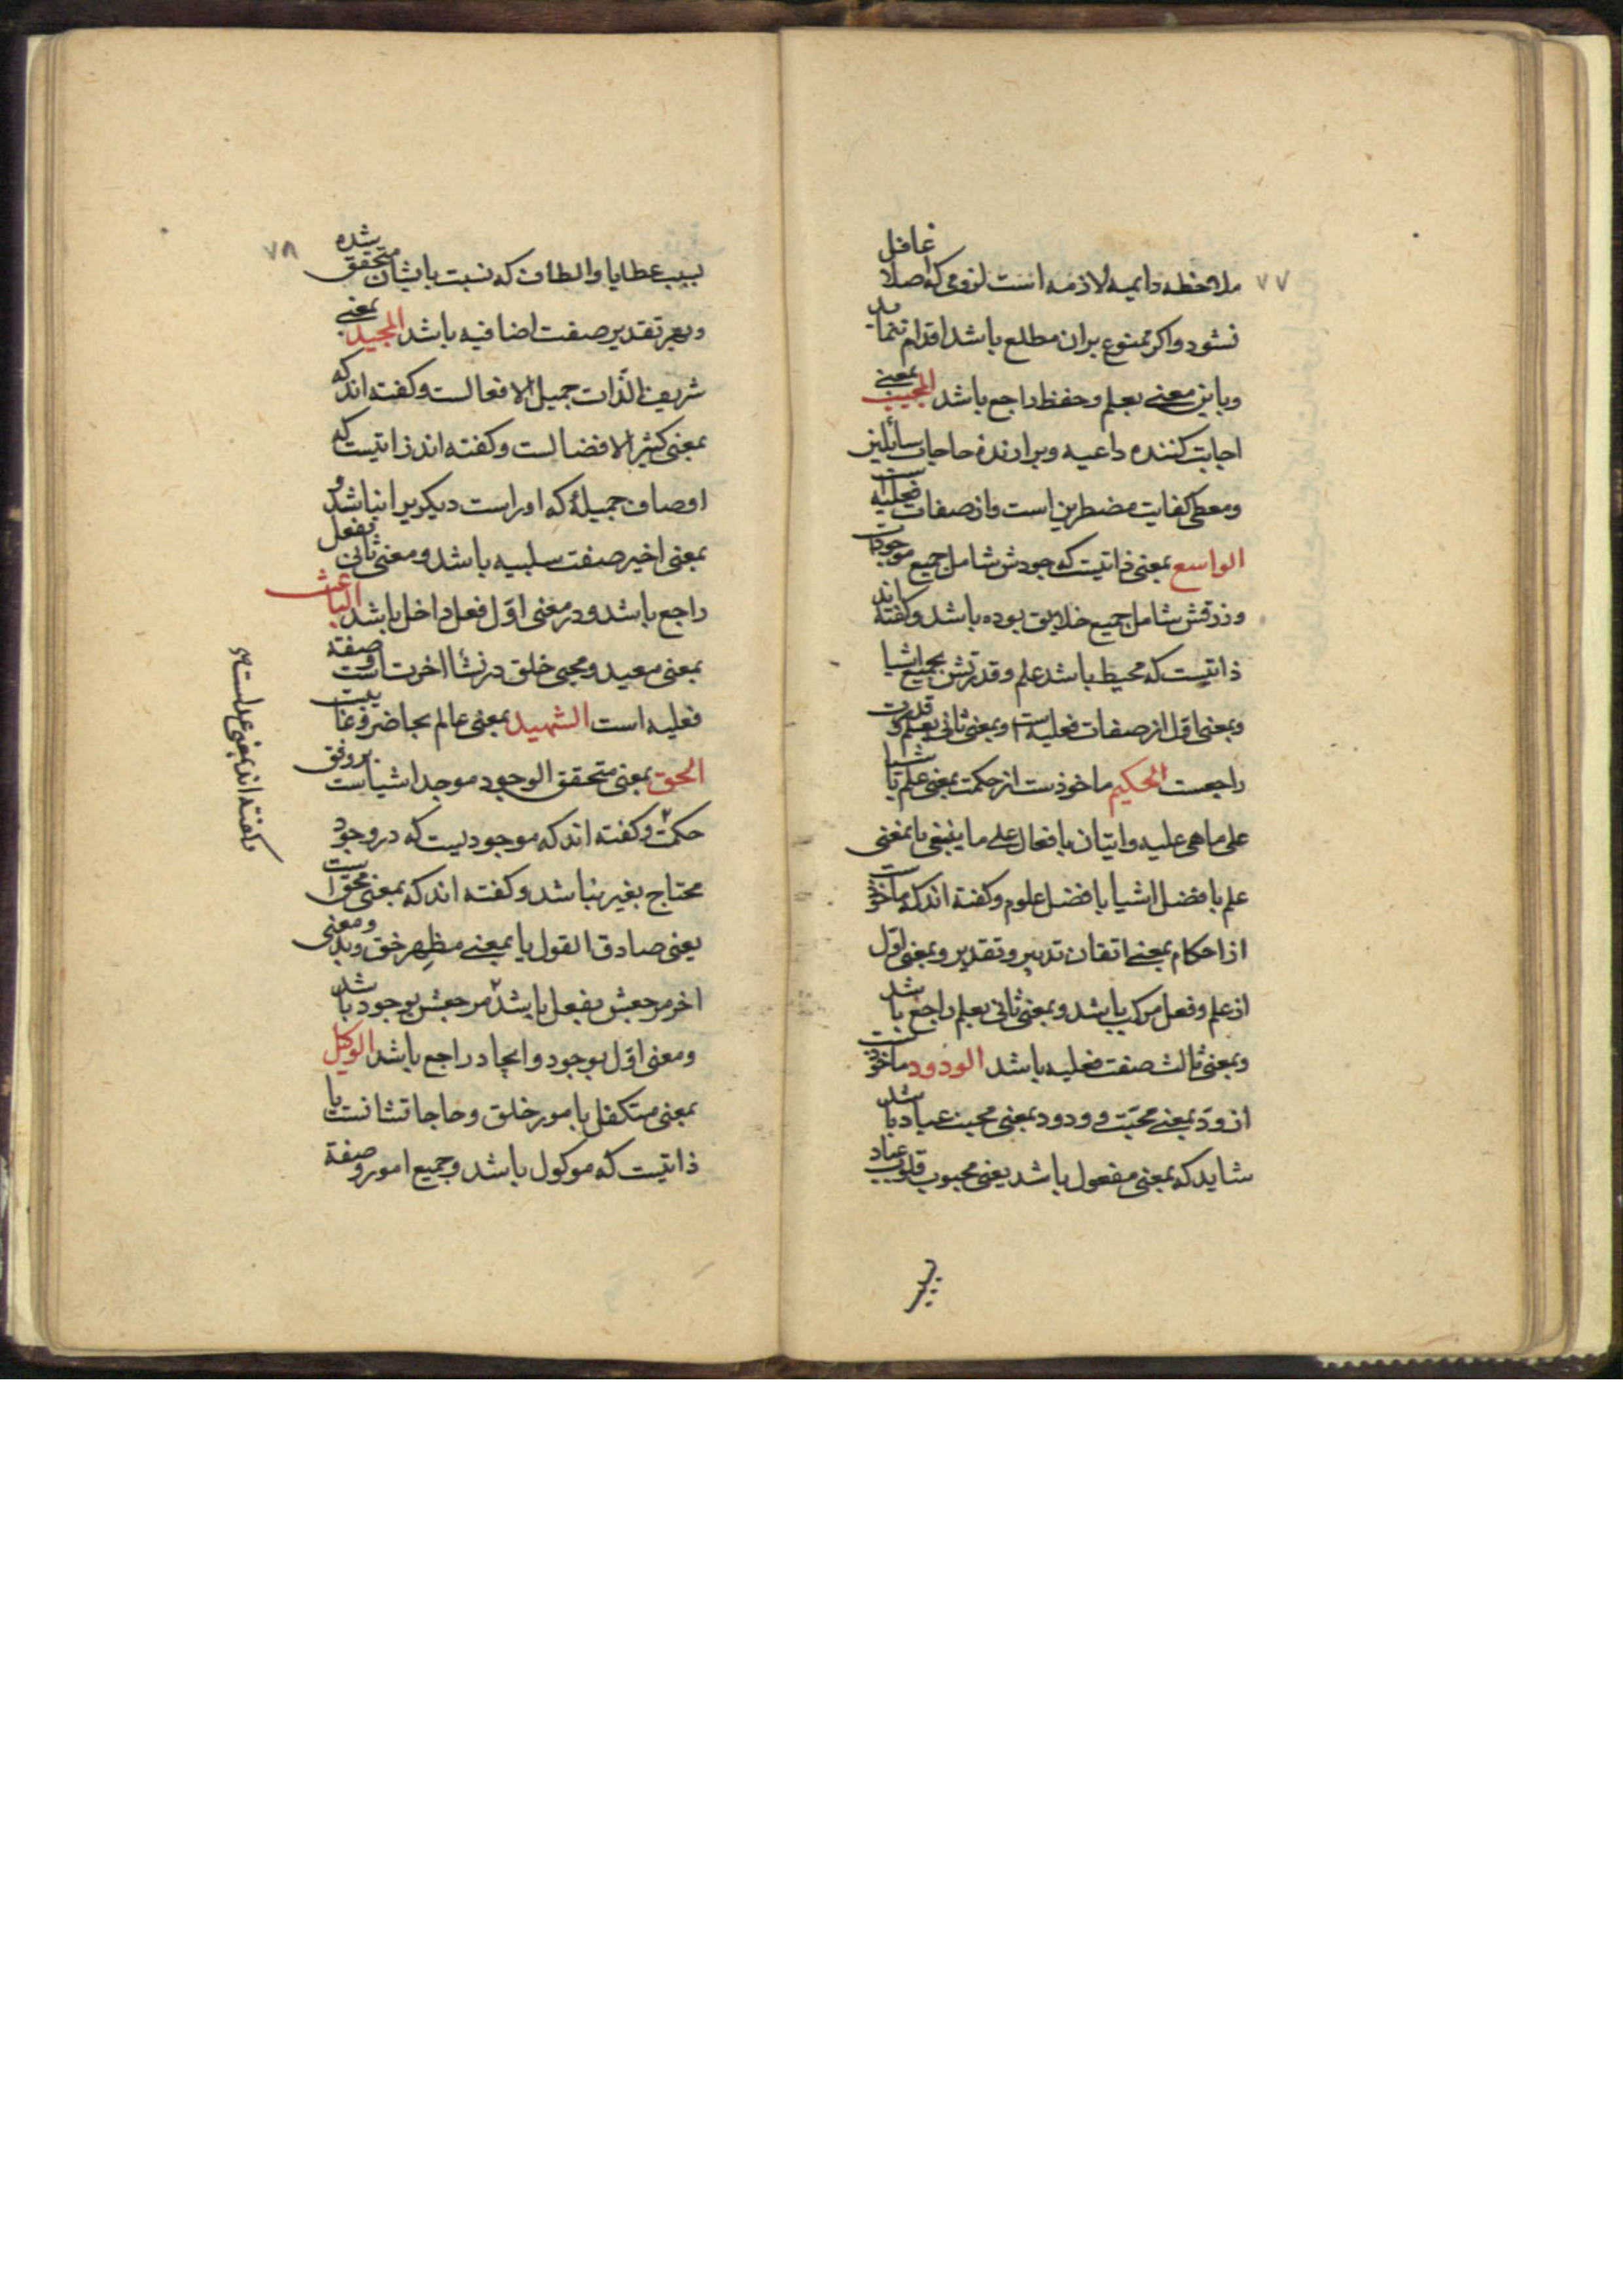 ۷۷
ملاحظه دایمیه لازمه انست لزومی که اصلا غافل
نشود واکر ممنوع بران مطلع باشد اقدام ننماید
وباین معنی بعلم وحفظ راجع باشد المجیب بمعنی
اجابت کننده داعیه وبرارنده حاجات سائلین
ومعطی کفایت مضطرین است واز صفات فعلیه است
الواسع بمعنی ذاتیست که جودش شامل جمیع موجودات
ورزقش شامل جمیع خلایق بوده باشد وکفته اند
ذاتیست که محیط باشد علم وقدرتش بجمیع اشیا
وبمعنی اول از صفات فعلیه است وبمعنی ثانی بعلم وقدرت
راجعست الحکیم ماخوذست از حکمت بمعنی علم باشیا
علی ماهی علیه واتیان بافعال علی ما ینبغی یا بمعنی
علم بافضل اشیا بافضل علوم وکفته اند که ماخوذست
از احکام بمعنی اتقان تدبیر وتقدیر وبمعنی اول
از علم وفعل مرکب باشد وبمعنی ثانی بعلم راجع باشد
وبمعنی ثالث صفت فعلیه باشد الودود ماخوذست
از ود بمعنی محبت و ودود بمعنی محب عباد باشد
شاید که بمعنی مفعول باشد یعنی محبوب قلوب عباد
بسبب
۷۸
بسبب عطایا والطاف که نسبت بایشان متحقق شده
وبهر تقدیر صفت اضافیه باشد المجید بمعنی
شریف الذات جمیل الافعالست وکفته اند که
بمعنی کثیر الافضالست وکفته اند ذاتیست که
اوصاف جمیلهٔ که اوراست دیکریرا نباشد و
بمعنی اخیر صفت سلبیه باشد ومعنی ثانی بفعل
راجع باشد ودر معنی اول فعل داخل باشد الباعث
بمعنی معید ومحیی خلق در نشاا اخرت است وصفة
فعلیه است الشهید بمعنی عالم بحاضر وغایبست
الحق بمعنی متحقق الوجود موجد اشیاست بروفق
حکمت وکفته اند که موجودیست که در وجود
محتاج بغیر نباشد وکفته اند که بمعنی محق است
یعنی صادق القول یا بمعنی مظهر حق وبد ومعنی
اخر مرجعش بفعل باشد مرجعش بوجود باشد
ومعنی اول بوجود وایجاد راجع باشد الوکیل
بمعنی متکفل بامور خلق وحاجاتشانست یا
ذاتیست که موکول باشد وجمیع امور وصفة
وکفته اند بمعنی عدلست